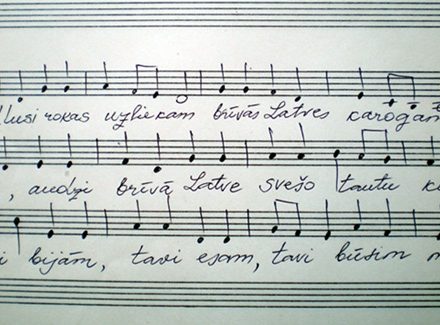 lusi rokas uzliekam brīvās Latves karogam
, audzi brīvā Latve svešo tautu k
i bijām, tavi esam, tavi būsim m